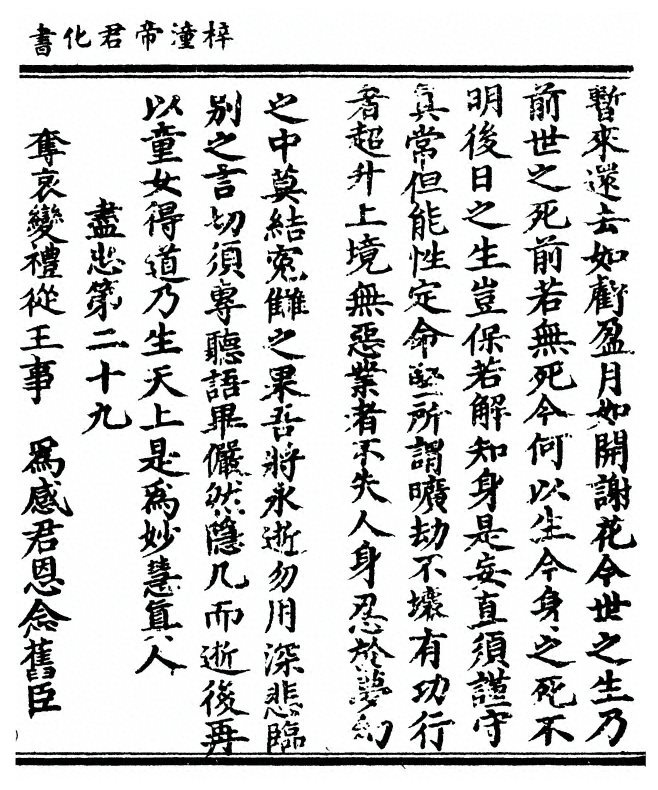 梓潼帝君化書
暫來還去如虧盈月如開謝花今世之生乃
前世之死前若無死今何以生今身之死不
明後日之生豈保若解知身是妄直須謹守
真常但能性定命堅所謂曠劫不壞有功行
者超升上境無惡業者不失人身忍於夢幻
之中莫結寃讎之果吾將永逝勿用深悲臨
別之言切須專聽語畢儼然隱几而逝後再
以童女得道乃生天上是為妙慧真人
盡忠第二十九
奪哀變禮從王事 為感君恩念舊臣